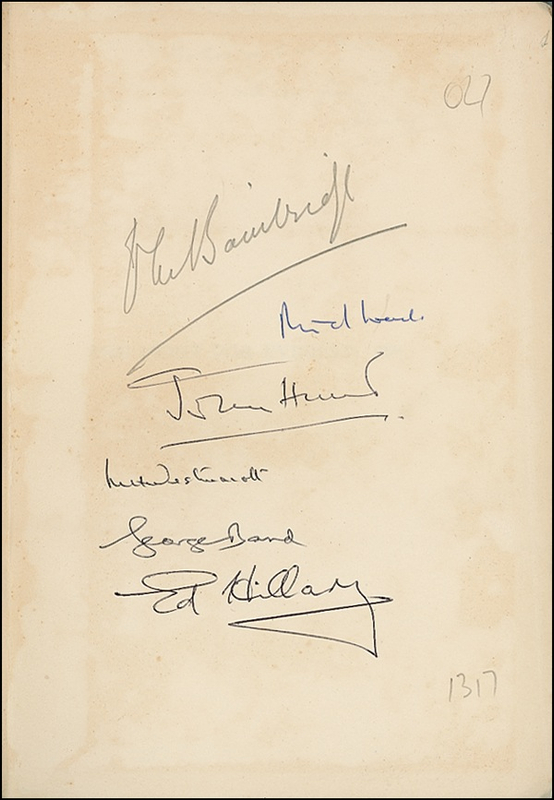 027
John Bainbridge
Michael Ward
John Hunt
M H Westmacott
George Band
Ed Hillary
1317